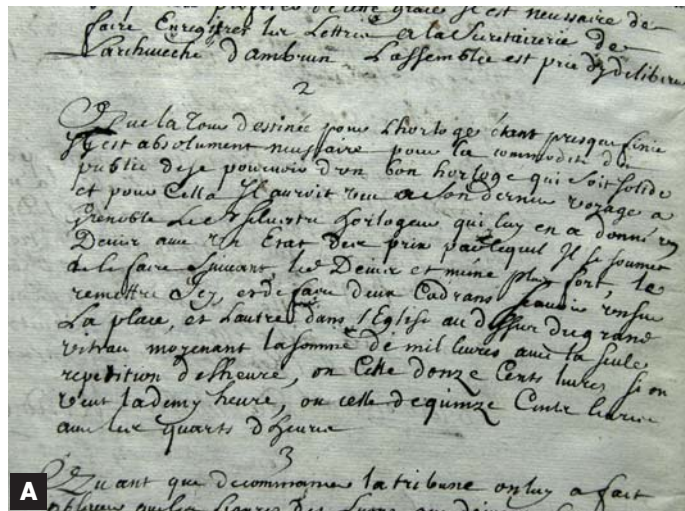 faire Enregistrer les Lettres a la Secretairerie de
Larcheveché d'ambrun Lassemblée est priée d'y delibérer
2
Que la Tour destinée pour Lhorloge étant presque finie
Il est absolument necessaire pour la commodité du
public de se pourvoir d'un bon horloge qui soit solide
et pour Cella Il auroit veu a son dernier voyage a
grenoble Le Sr horlogeur qui luy en a donné un
Devis avec un Etat des prix par lequel Il se soumet
de le faire suivant led Devis et même plus fort, le
remettre Icy, et de faire deux Cadrans scavoir un sur
La place, et Lautre dans l'Eglise au dessus du grand
vitrau moyenant la somme de mil livres avec la seule
repetition des heures, ou Celle douze Cents livres si on
veut la demy heure, ou celle de quinze Cents livres
avec les quarts d'heures
3
Quant que de commancer la tribune on luy a fait
A